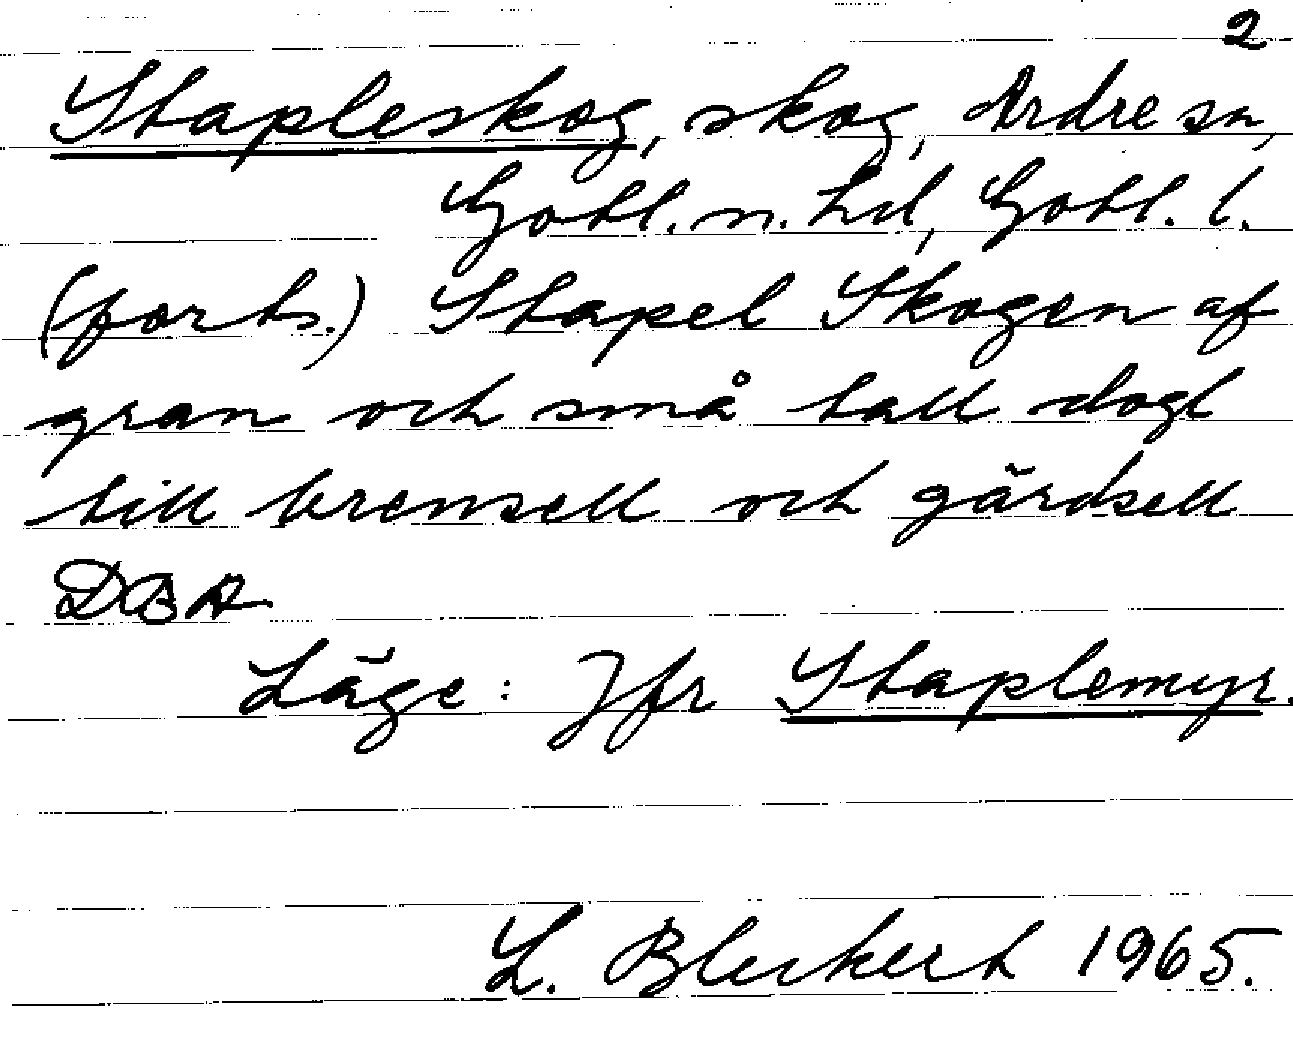 2
Stapleskog, skog, Ardre sn,
Gotl. n. hd, Gotl. l.
(forts.) Stapel Skogen af
gran och små tall dogl
till brensell och gärdsell
DBA
Läge: Jfr Staplemyr.
L. Bleckert 1965.